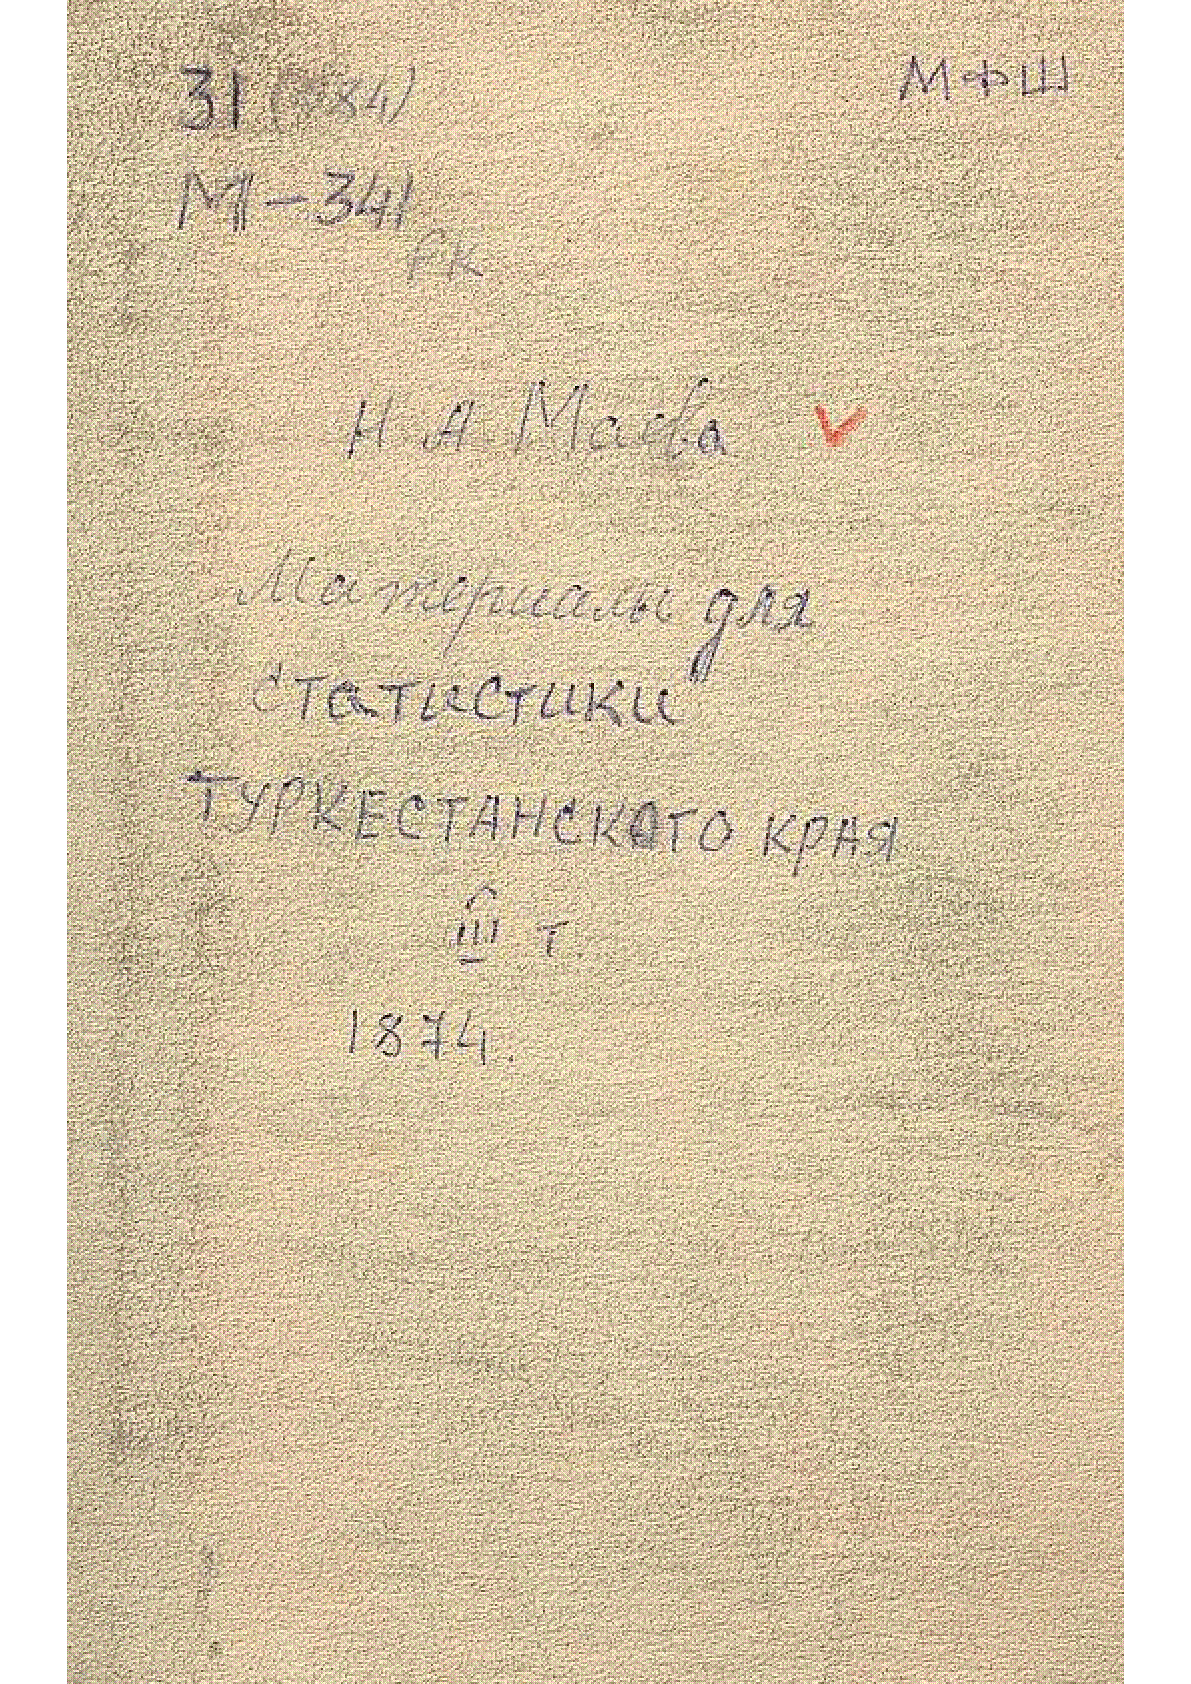 31 (584) МФШ
М-341
РК
Н. А. Маева
Материалы для
статистики
ТУРКЕСТАНСКОГО КРАЯ
III т.
1874.